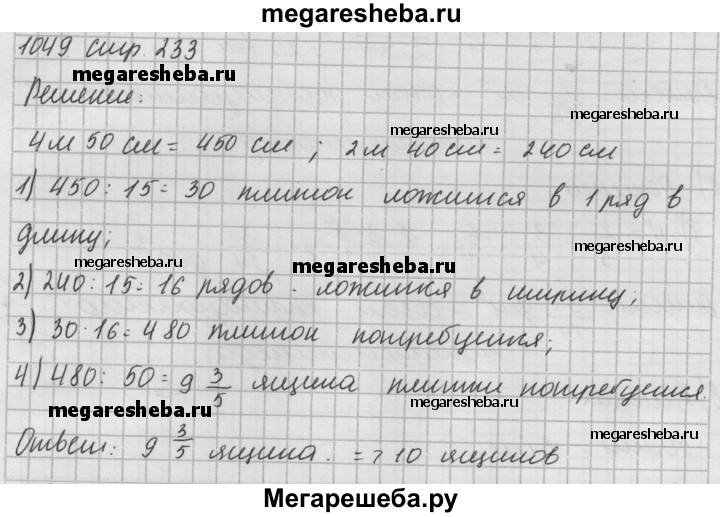 megaresheba.ru
1049 стр. 233
megaresheba.ru
Решение:
megaresheba.ru
megaresheba.ru
4 м 50 см = 450 см ; 2 м 40 см = 240 см
1) 450 : 15 = 30 плиток ложится в 1 ряд в
длину;
megaresheba.ru
megaresheba.ru
megaresheba.ru
2) 240 : 15 = 16 рядов - ложится в ширину;
3) 30 · 16 = 480 плиток потребуется;
4) 480 : 50 = 9 3/5 ящика плитки потребуется.
megaresheba.ru
megaresheba.ru
megaresheba.ru
Ответ: 9 3/5 ящика. => 10 ящиков
Мегарешеба.ру